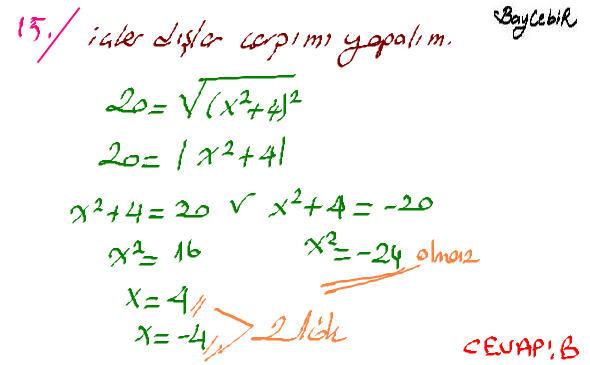 15./ içler dışlar çarpımı yapalım. BayCebİR
20=√(x²+4)²
20=|x²+4|
x²+4=20 ∨ x²+4=-20
x²=16 x²=-24 olmaz
x=4
x=-4 2 kök
CEVAP:B